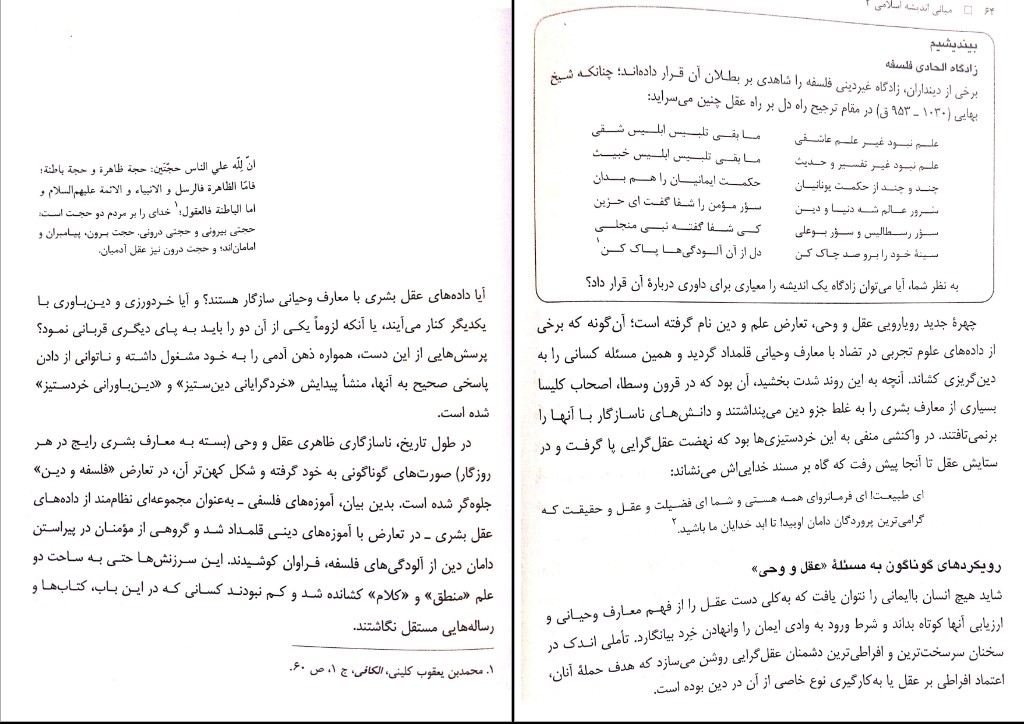 ۶۴ □ مبانی اندیشه اسلامی ۲
بیندیشیم
زادگاه الحادی فلسفه
برخی از دینداران، زادگاه غیردینی فلسفه را شاهدی بر بطلان آن قرار داده‌اند؛ چنانکه شیخ
بهایی (۱۰۳۰ ـ ۹۵۳ ق) در مقام ترجیح راه دل بر راه عقل چنین می‌سراید:
علم نبود غیر علم عاشقی ما بقی تلبیس ابلیس شقی
علم نبود غیر تفسیر و حدیث ما بقی تلبیس ابلیس خبیث
چند و چند از حکمت یونانیان حکمت ایمانیان را هم بدان
سَرور عالم شه دنیا و دین سؤر مؤمن را شفا گفت ای حزین
سؤر رسطالیس و سؤر بوعلی کی شفا گفته نبی منجلی
سینهٔ خود را برو صد چاک کن دل از آن آلودگی‌ها پاک کن۱
به نظر شما، آیا می‌توان زادگاه یک اندیشه را معیاری برای داوری دربارهٔ آن قرار داد؟
چهرهٔ جدید رویارویی عقل و وحی، تعارض علم و دین نام گرفته است؛ آن‌گونه که برخی
از داده‌های علوم تجربی در تضاد با معارف وحیانی قلمداد گردید و همین مسئله کسانی را به
دین‌گریزی کشاند. آنچه به این روند شدت بخشید، آن بود که در قرون وسطا، اصحاب کلیسا
بسیاری از معارف بشری را به غلط جزو دین می‌پنداشتند و دانش‌های ناسازگار با آنها را
برنمی‌تافتند. در واکنشی منفی به این خردستیزی‌ها بود که نهضت عقل‌گرایی پا گرفت و در
ستایش عقل تا آنجا پیش رفت که گاه بر مسند خدایی‌اش می‌نشاند:
ای طبیعت! ای فرمانروای همه هستی و شما ای فضیلت و عقل و حقیقت که
گرامی‌ترین پروردگان دامان اویید! تا ابد خدایان ما باشید.۲
رویکردهای گوناگون به مسئلهٔ «عقل و وحی»
شاید هیچ انسان باایمانی را نتوان یافت که به‌کلی دست عقل را از فهم معارف وحیانی و
ارزیابی آنها کوتاه بداند و شرط ورود به وادی ایمان را وانهادن خِرد بینگارد. تأملی اندک در
سخنان سرسخت‌ترین و افراطی‌ترین دشمنان عقل‌گرایی روشن می‌سازد که هدف حملهٔ آنان،
اعتماد افراطی بر عقل یا به‌کارگیری نوع خاصی از آن در دین بوده است.
انّ لِلّه علي الناس حجّتَین: حجة ظاهرة و حجة باطنة؛
فامّا الظاهرة فالرسل و الانبیاء و الائمة علیهم‌السلام و
اما الباطنة فالعقول؛۱ خدای را بر مردم دو حجت است:
حجتی بیرونی و حجتی درونی. حجت برون، پیامبران و
امامان‌اند؛ و حجت درون نیز عقل آدمیان.
آیا داده‌های عقل بشری با معارف وحیانی سازگار هستند؟ و آیا خردورزی و دین‌باوری با
یکدیگر کنار می‌آیند، یا آنکه لزوماً یکی از آن دو را باید به پای دیگری قربانی نمود؟
پرسش‌هایی از این دست، همواره ذهن آدمی را به خود مشغول داشته و ناتوانی از دادن
پاسخی صحیح به آنها، منشأ پیدایش «خردگرایانی دین‌ستیز» و «دین‌باورانی خردستیز»
شده است.
در طول تاریخ، ناسازگاری ظاهری عقل و وحی (بسته به معارف بشری رایج در هر
روزگار) صورت‌های گوناگونی به خود گرفته و شکل کهن‌تر آن، در تعارض «فلسفه و دین»
جلوه‌گر شده است. بدین بیان، آموزه‌های فلسفی ـ به‌عنوان مجموعه‌ای نظام‌مند از داده‌های
عقل بشری ـ در تعارض با آموزه‌های دینی قلمداد شد و گروهی از مؤمنان در پیراستن
دامان دین از آلودگی‌های فلسفه، فراوان کوشیدند. این سرزنش‌ها حتی به ساحت دو
علم «منطق» و «کلام» کشانده شد و کم نبودند کسانی که در این باب، کتاب‌ها و
رساله‌هایی مستقل نگاشتند.
۱. محمدبن یعقوب کلینی، الکافی، ج ۱، ص ۶۰.